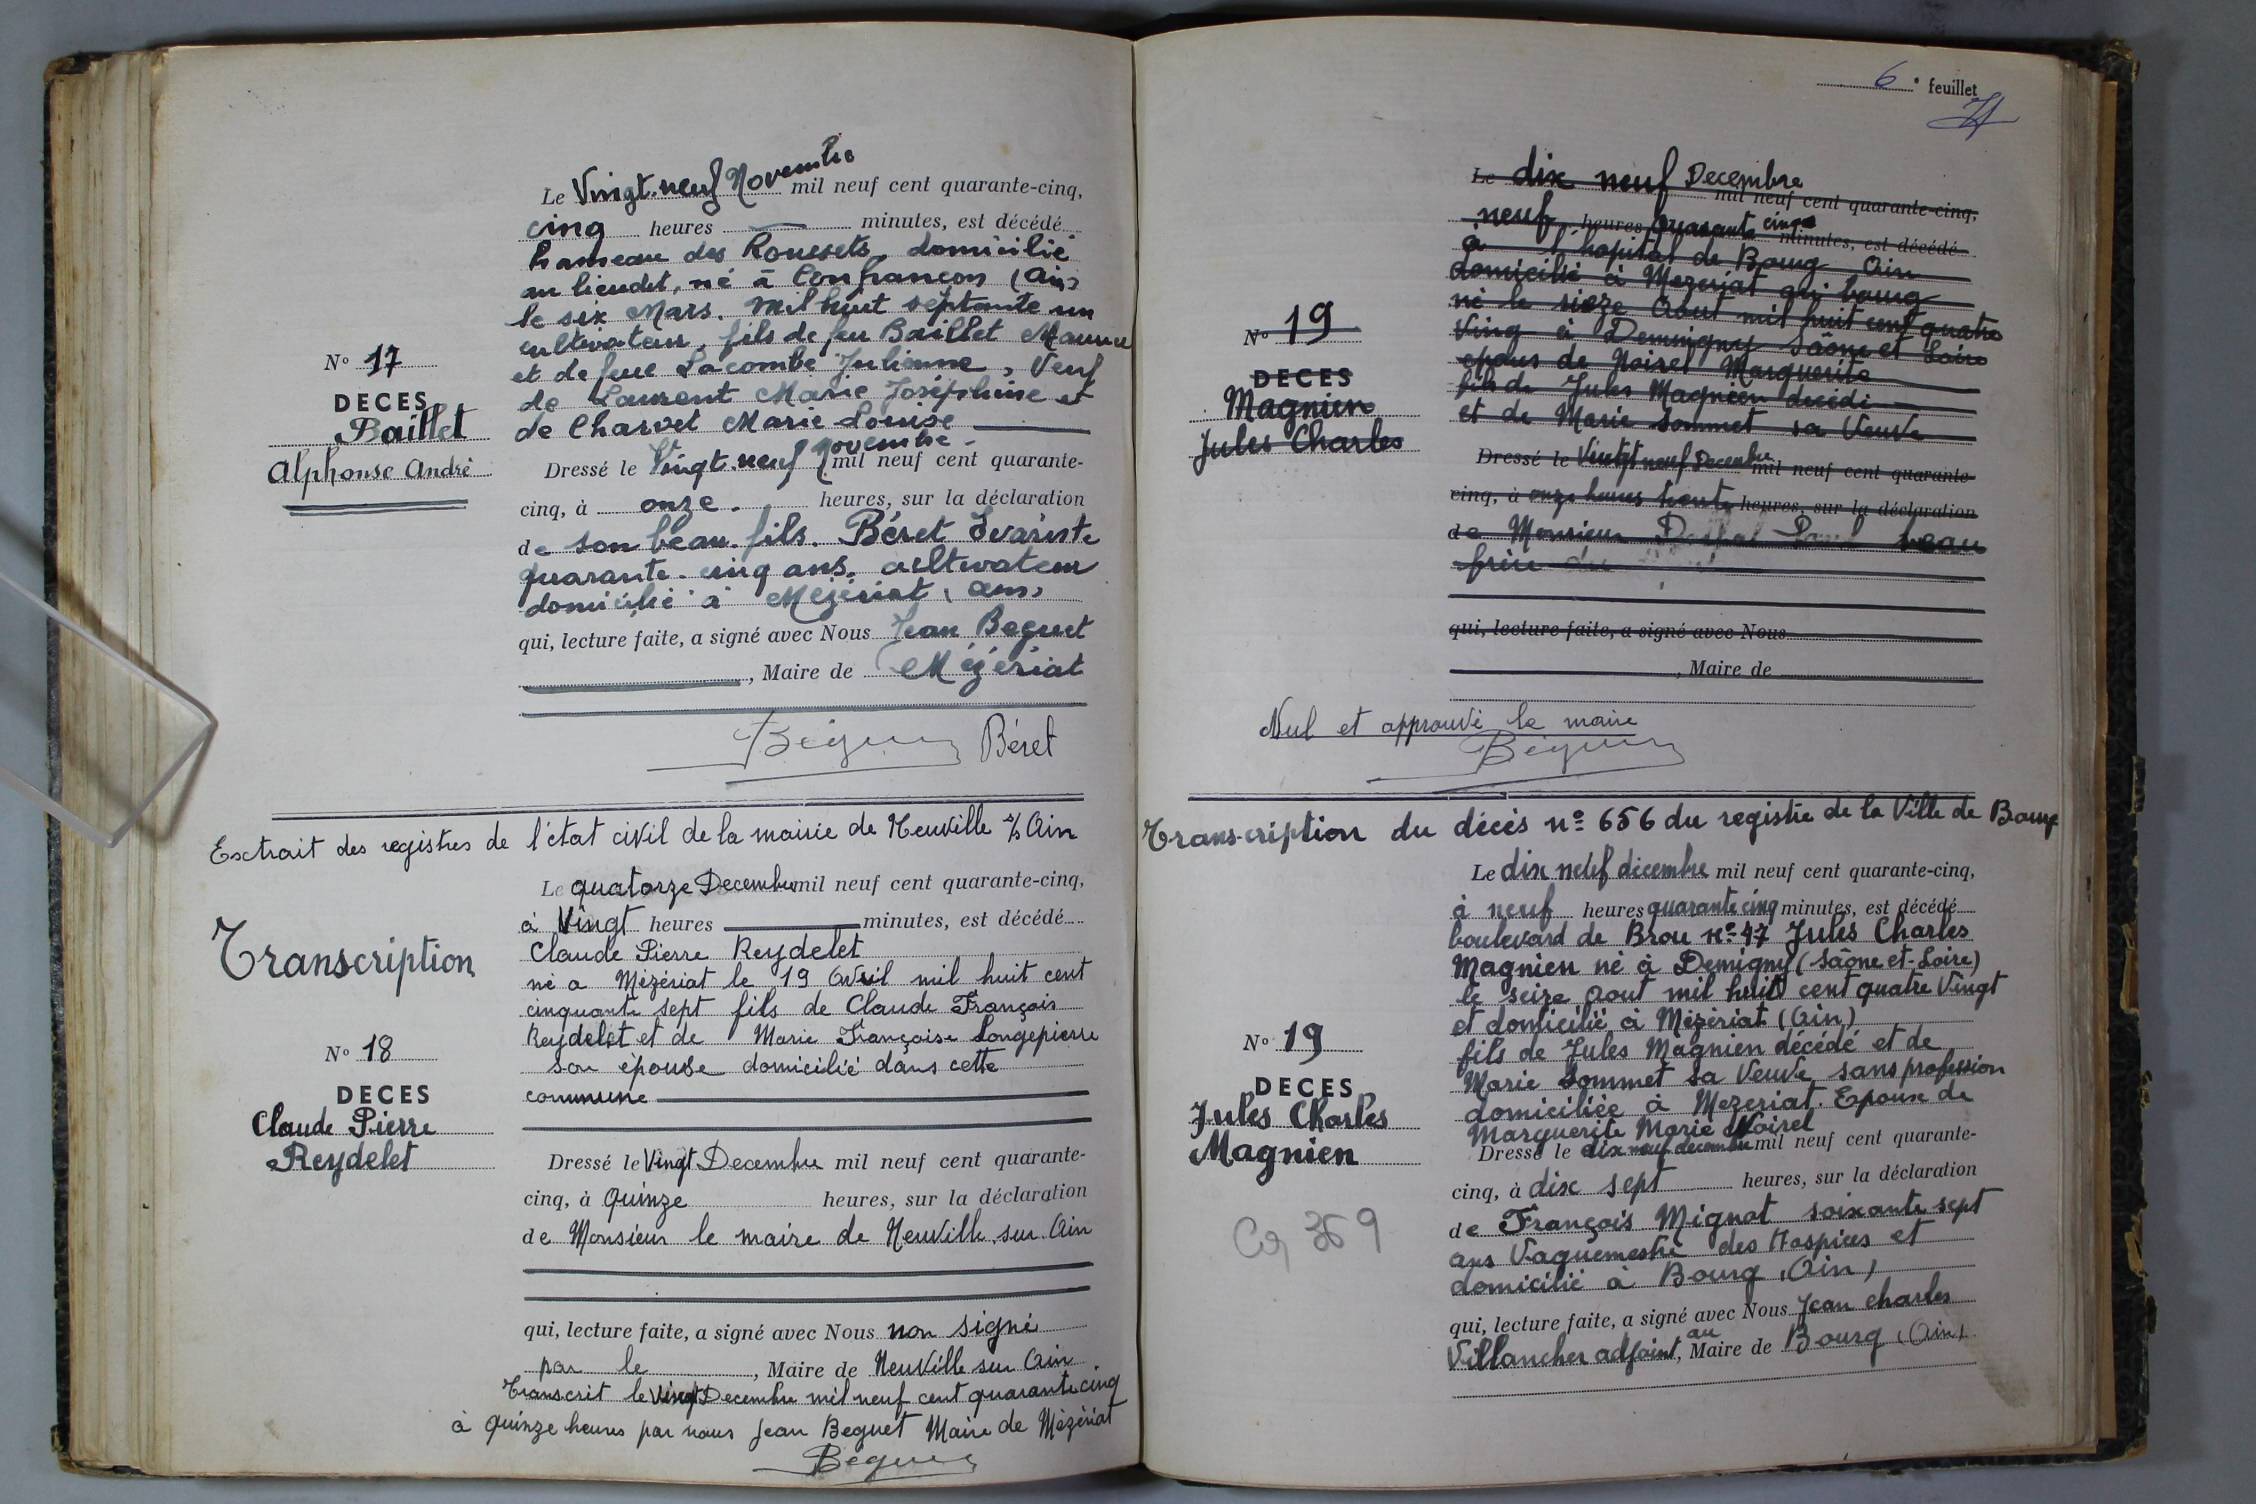 Le Vingt-neuf Novembre mil neuf cent quarante-cinq,
cinq heures minutes, est décédé
hameau des Roussets, domicilié
au lieudit, né à Confrançon (Ain)
le six Mars. Mil huit septante un
cultivateur, fils de feu Baillet Maurice
et de feue Lacombe Julienne, Veuf
de Laurent Marie Joséphine et
de Charvet Marie Louise
N° 17
DECES
Baillet
Alphonse André
Dressé le Vingt-neuf Novembre mil neuf cent quarante-
cinq, à onze heures, sur la déclaration
de son beau-fils. Béret Evariste
quarante-cinq ans, cultivateur
domicilié à Mézériat (Ain)
qui, lecture faite, a signé avec Nous Jean Beguet
, Maire de Mézériat
Beguet Béret
Extrait des registres de l'état civil de la mairie de Neuville s/ Ain
Transcription
N° 18
DECES
Claude Pierre
Reydelet
Le quatorze Decembre mil neuf cent quarante-cinq,
à Vingt heures minutes, est décédé
Claude Pierre Reydelet
né a Mézériat le 19 Avril mil huit cent
cinquante sept fils de Claude François
Reydelet et de Marie Françoise Longepierre
son épouse domicilié dans cette
commune
Dressé le Vingt Decembre mil neuf cent quarante-
cinq, à Quinze heures, sur la déclaration
de Monsieur le maire de Neuville sur Ain
qui, lecture faite, a signé avec Nous non signé
par le , Maire de Neuville sur Ain
Transcrit le Vingt Decembre mil neuf cent quarante cinq
à Quinze heures par nous Jean Beguet Maire de Mézériat
Beguet
6e feuillet
N° 19
DECES
Magnien
Jules Charles
Le dix neuf Decembre mil neuf cent quarante-cinq,
neuf heures quarante cinq minutes, est décédé
à l'hopital de Bourg Ain
domicilié à Mezeriat au bourg
né le sieze Aout mil huit cent quatre
Ving à Demingny Saône et Loire
epoux de Noirel Marguerite
fils de Jules Magnien decédé
et de Marie Sommet sa Veuve
Dressé le Vingt neuf Decembre mil neuf cent quarante-
cinq, à onze heures trente heures, sur la déclaration
de Monsieur beau
frère du
qui, lecture faite, a signé avec Nous
, Maire de
Nul et approuvé le maire
Beguet
Transcription du décès n° 656 du registre de la Ville de Bourg
N° 19
DECES
Jules Charles
Magnien
Cg 369
Le dix neuf décembre mil neuf cent quarante-cinq,
à neuf heures quarante cinq minutes, est décédé
boulevard de Brou n° 47 Jules Charles
Magnien né à Demigny (Saône-et-Loire)
le seize Aout mil huit cent quatre Vingt
et domicilié à Mézériat (Ain)
fils de Jules Magnien décédé et de
Marie Sommet sa Veuve sans profession
domiciliée à Mezeriat. Epoux de
Marguerite Marie Noirel
Dressé le dix neuf décembre mil neuf cent quarante-
cinq, à dix sept heures, sur la déclaration
de François Mignot soixante sept
ans Vaguemestre des Hospices et
domicilié à Bourg (Ain)
qui, lecture faite, a signé avec Nous Jean Charles
Villancher adjoint, au Maire de Bourg (Ain)